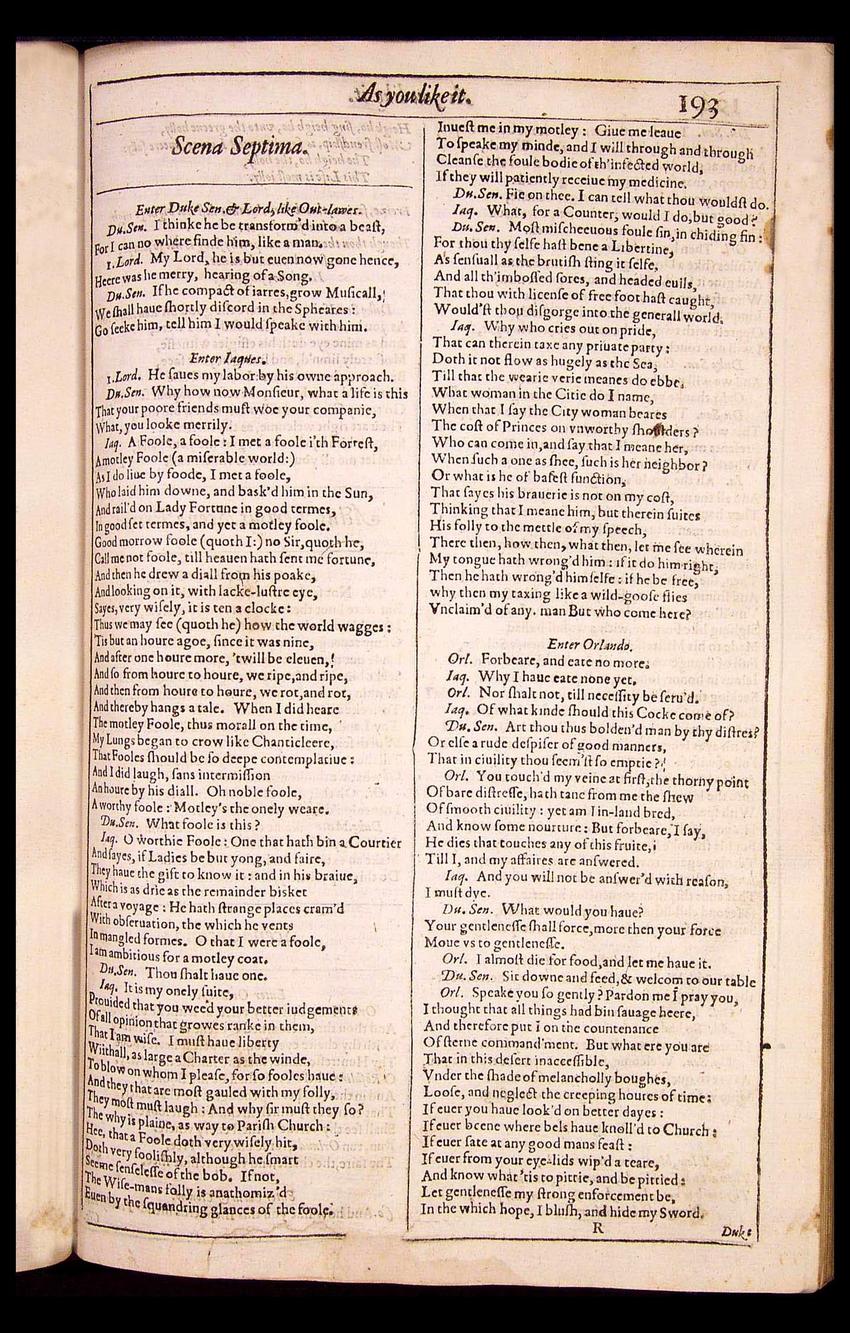 As you like it.
193
Scena Septima.
Enter Duke Sen. & Lord, like Out-lawes.
Du.Sen. I thinke he be transform'd into a beast,
For I can no where finde him, like a man.
1.Lord. My Lord, he is but euen now gone hence,
Heere was he merry, hearing of a Song.
Du.Sen. If he compact of iarres, grow Musicall,
We shall haue shortly discord in the Spheares:
Go seeke him, tell him I would speake with him.
Enter Iaques.
1.Lord. He saues my labor by his owne approach.
Du.Sen. Why how now Monsieur, what a life is this
That your poore friends must woe your companie,
What, you looke merrily.
Iaq. A Foole, a foole: I met a foole i'th Forrest,
A motley Foole (a miserable world:)
As I do liue by foode, I met a foole,
Who laid him downe, and bask'd him in the Sun,
And rail'd on Lady Fortune in good termes,
In good set termes, and yet a motley foole.
Good morrow foole (quoth I:) no Sir, quoth he,
Call me not foole, till heauen hath sent me fortune,
And then he drew a diall from his poake,
And looking on it, with lacke-lustre eye,
Sayes, very wisely, it is ten a clocke:
Thus we may see (quoth he) how the world wagges:
'Tis but an houre agoe, since it was nine,
And after one houre more, 'twill be eleuen,
And so from houre to houre, we ripe, and ripe,
And then from houre to houre, we rot, and rot,
And thereby hangs a tale. When I did heare
The motley Foole, thus morall on the time,
My Lungs began to crow like Chanticleere,
That Fooles should be so deepe contemplatiue:
And I did laugh, sans intermission
An houre by his diall. Oh noble foole,
A worthy foole: Motley's the onely weare.
Du.Sen. What foole is this?
Iaq. O worthie Foole: One that hath bin a Courtier
And sayes, if Ladies be but yong, and faire,
They haue the gift to know it: and in his braiue,
Which is as drie as the remainder bisket
After a voyage: He hath strange places cram'd
With obseruation, the which he vents
In mangled formes. O that I were a foole,
I am ambitious for a motley coat.
Du.Sen. Thou shalt haue one.
Iaq. It is my onely suite,
Prouided that you weed your better iudgements
Of all opinion that growes ranke in them,
That I am wise. I must haue liberty
Wiithall, as large a Charter as the winde,
To blow on whom I please, for so fooles haue:
And they that are most gauled with my folly,
They most must laugh: And why sir must they so?
The why is plaine, as way to Parish Church:
Hee, that a Foole doth very wisely hit,
Doth very foolishly, although he smart
Seeme senselesse of the bob. If not,
The Wise-mans folly is anathomiz'd
Euen by the squandring glances of the foole.
Inuest me in my motley: Giue me leaue
To speake my minde, and I will through and through
Cleanse the foule bodie of th'infected world,
If they will patiently receiue my medicine.
Du.Sen. Fie on thee. I can tell what thou wouldst do.
Iaq. What, for a Counter, would I do, but good?
Du.Sen. Most mischeeuous foule sin, in chiding sin:
For thou thy selfe hast bene a Libertine,
As sensuall as the brutish sting it selfe,
And all th'imbossed sores, and headed euils,
That thou with license of free foot hast caught,
Would'st thou disgorge into the generall world.
Iaq. Why who cries out on pride,
That can therein taxe any priuate party:
Doth it not flow as hugely as the Sea,
Till that the wearie verie meanes do ebbe.
What woman in the Citie do I name,
When that I say the City woman beares
The cost of Princes on vnworthy shoulders?
Who can come in, and say that I meane her,
When such a one as shee, such is her neighbor?
Or what is he of basest function,
That sayes his brauerie is not on my cost,
Thinking that I meane him, but therein suites
His folly to the mettle of my speech,
There then, how then, what then, let me see wherein
My tongue hath wrong'd him: if it do him right,
Then he hath wrong'd himselfe: if he be free,
why then my taxing like a wild-goose flies
Vnclaim'd of any. man But who come here?
Enter Orlando.
Orl. Forbeare, and eate no more.
Iaq. Why I haue eate none yet.
Orl. Nor shalt not, till necessity be seru'd.
Iaq. Of what kinde should this Cocke come of?
Du.Sen. Art thou thus bolden'd man by thy distres?
Or else a rude despiser of good manners,
That in ciuility thou seem'st so emptie?
Orl. You touch'd my veine at first, the thorny point
Of bare distresse, hath tane from me the shew
Of smooth ciuility: yet am I in-land bred,
And know some nourture: But forbeare, I say,
He dies that touches any of this fruite,
Till I, and my affaires are answered.
Iaq. And you will not be answer'd with reason,
I must dye.
Du.Sen. What would you haue?
Your gentlenesse shall force, more then your force
Moue vs to gentlenesse.
Orl. I almost die for food, and let me haue it.
Du.Sen. Sit downe and feed, & welcom to our table
Orl. Speake you so gently? Pardon me I pray you,
I thought that all things had bin sauage heere,
And therefore put I on the countenance
Of sterne command'ment. But what ere you are
That in this desert inaccessible,
Vnder the shade of melancholly boughes,
Loose, and neglect the creeping houres of time:
If euer you haue look'd on better dayes:
If euer beene where bels haue knoll'd to Church:
If euer sate at any good mans feast:
If euer from your eye-lids wip'd a teare,
And know what 'tis to pittie, and be pittied:
Let gentlenesse my strong enforcement be,
In the which hope, I blush, and hide my Sword.
R
Duke